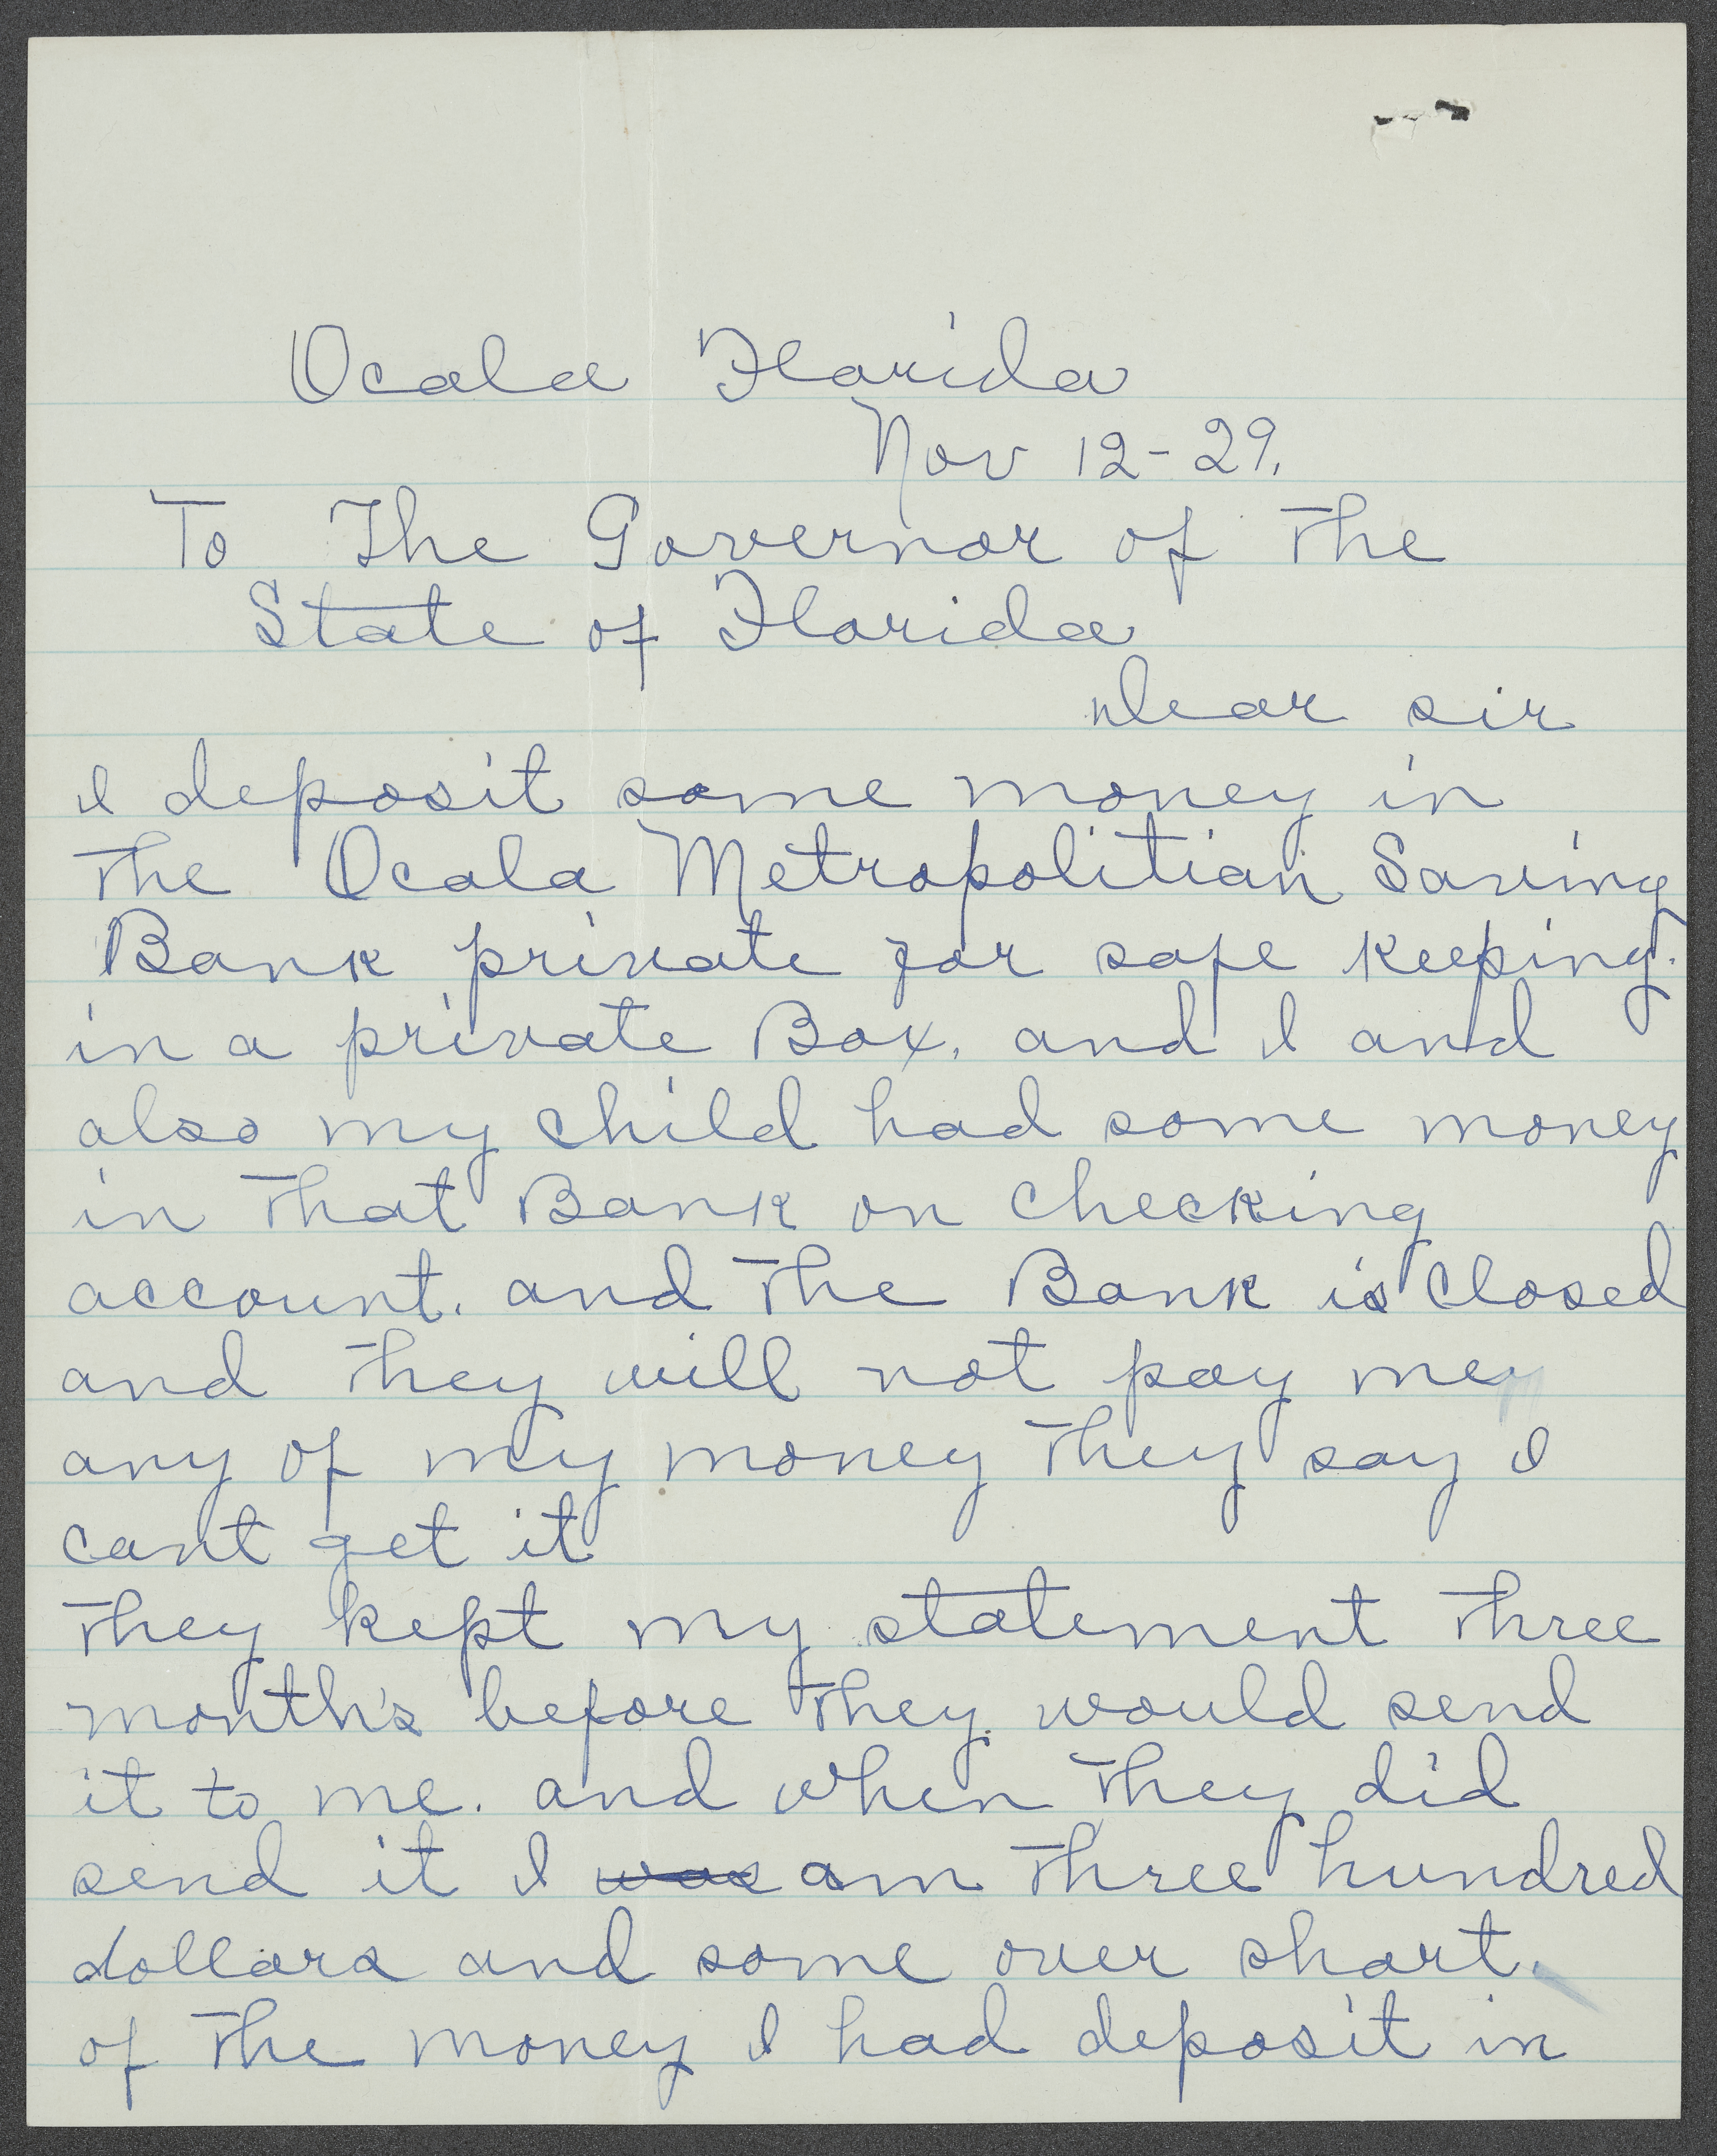 Ocala Florida
Nov 12-29.
To The Governor of the
State of Florida
Dear sir
I deposit some money in
the Ocala Metropolitian Saving
Bank private for safe keeping.
in a private Box. and I and
also my child had some money
in that Bank on checking
account. and the Bank is closed
and they will not pay me
any of my money they say I
cant get it
they kept my statement three
month's before they would send
it to me. and when they did
send it I was am three hundred
dollars and some over short.
of the money I had deposit in